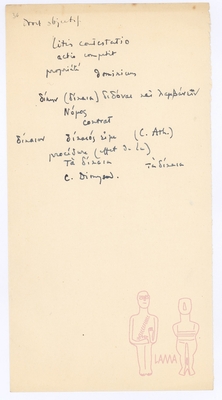 Droit objectif.
Litis contestatio
actio competit
propriété dominium
δίκην (δίκαια) διδόναι καὶ λαμβάνειν
Νόμος
contrat
δίκαιον δίκαιός εἰμι (C. Ath.)
procédure (effet de la)
Τὰ δίκαια τὰ δίκαια
C. Dionysod.
LAMA